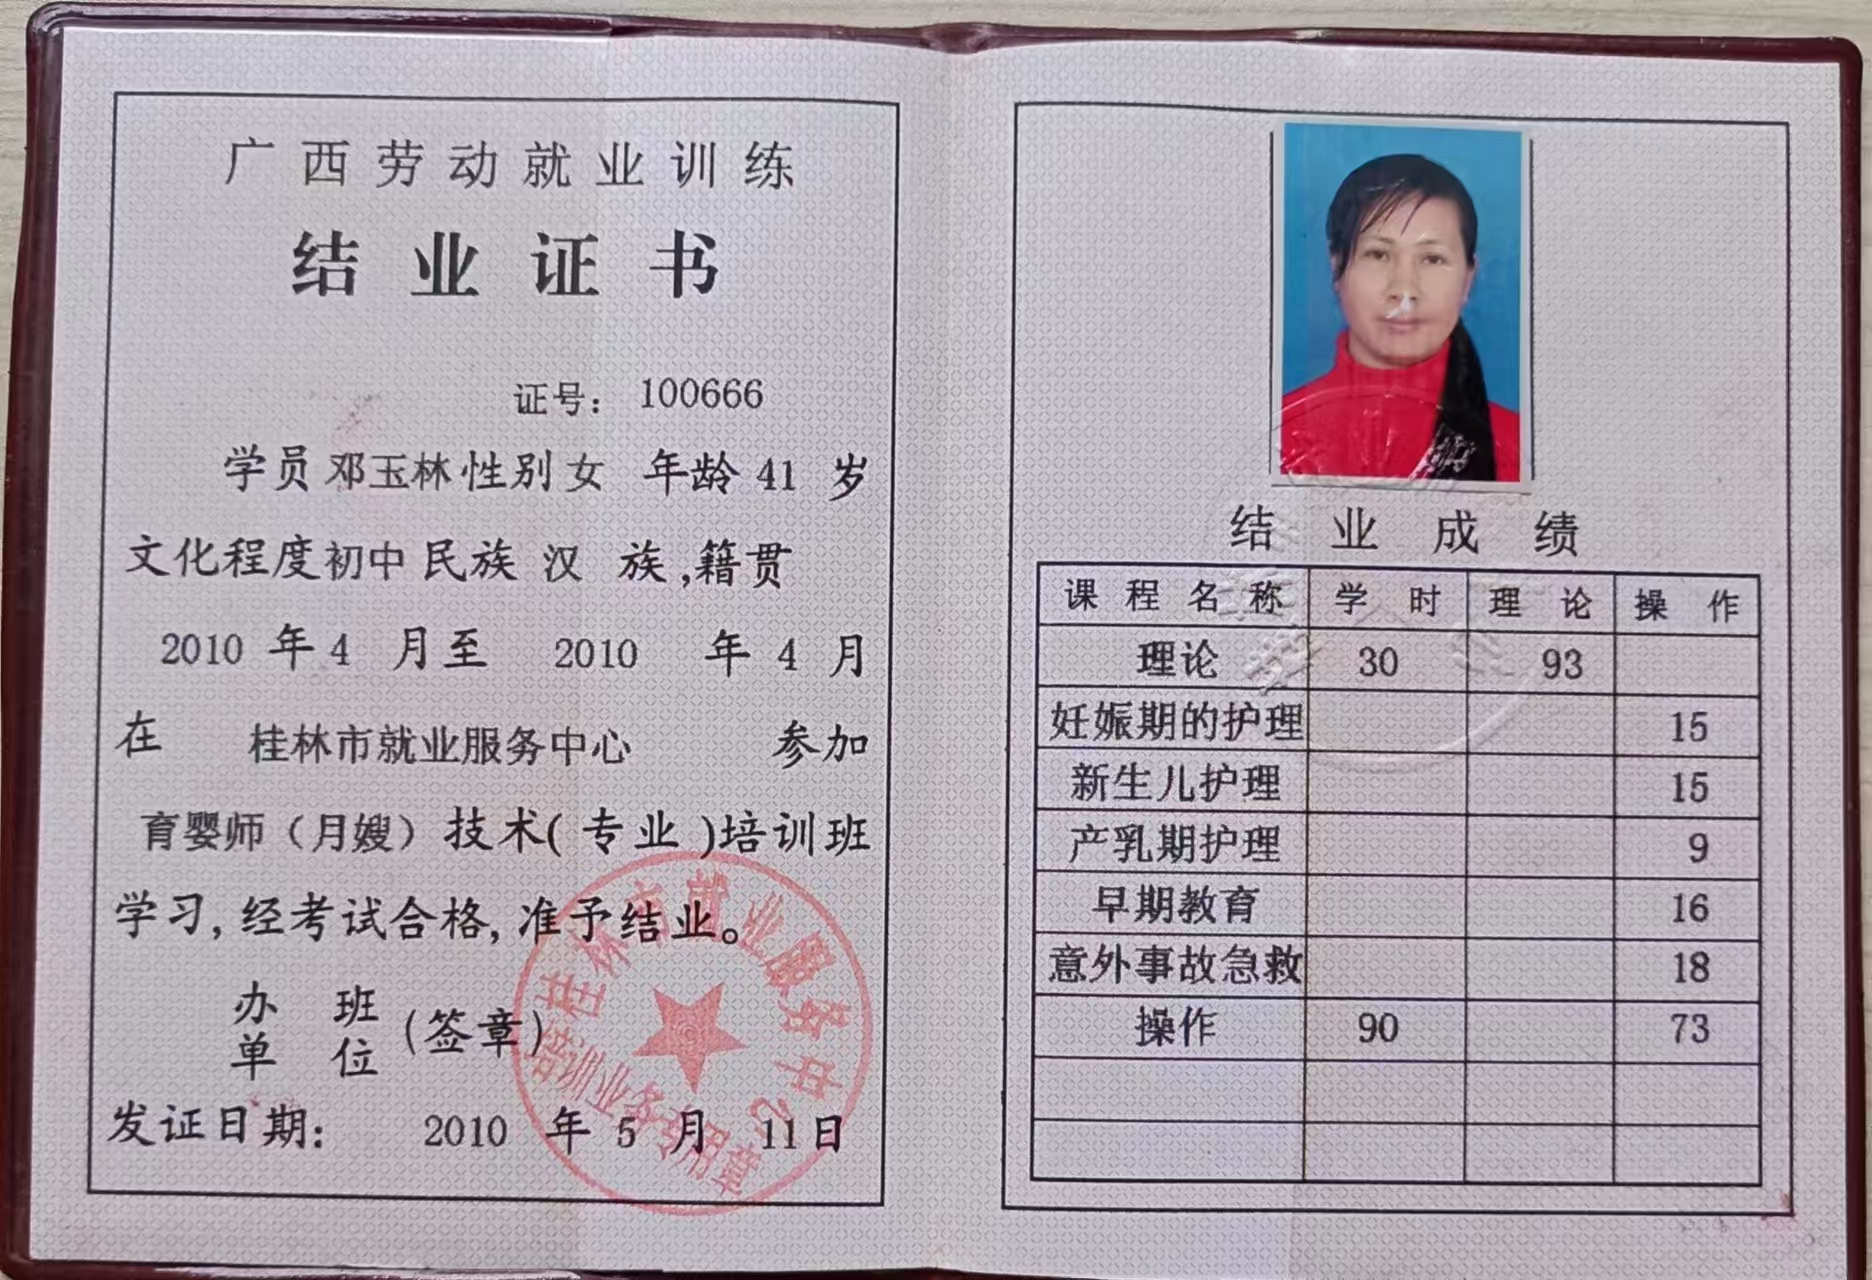 广西劳动就业训练
结业证书
证号： 100666
学员 邓玉林 性别 女 年龄 41 岁
文化程度 初中 民族 汉 族,籍贯
2010 年 4 月至 2010 年 4 月
在 桂林市就业服务中心 参加
育婴师（月嫂）技术( 专业 )培训班
学习,经考试合格,准予结业。
办班单位(签章)
发证日期: 2010 年 5 月 11日
桂林市就业服务中心
培训业务专用章
结业成绩
课程名称 学时 理论 操作
理论 30 93
妊娠期的护理 15
新生儿护理 15
产乳期护理 9
早期教育 16
意外事故急救 18
操作 90 73